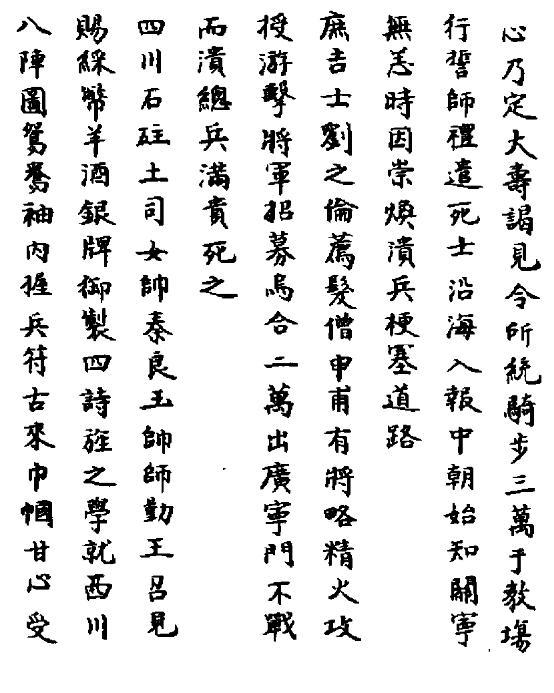 心乃定大壽謁見令所統騎步三萬于教塲
行誓師禮遣死士沿海入報中朝始知關寧
無恙時因崇煥潰兵梗塞道路
庶吉士劉之倫薦髮僧申甫有將略精火攻
授游擊將軍招募烏合二萬出廣寧門不戰
而潰總兵滿貴死之
四川石砫土司女帥秦良玉帥師勤王召見
賜綵幣羊酒銀牌御製四詩旌之學就西川
八陣圖鴛鴦袖內握兵符古來巾幗甘心受